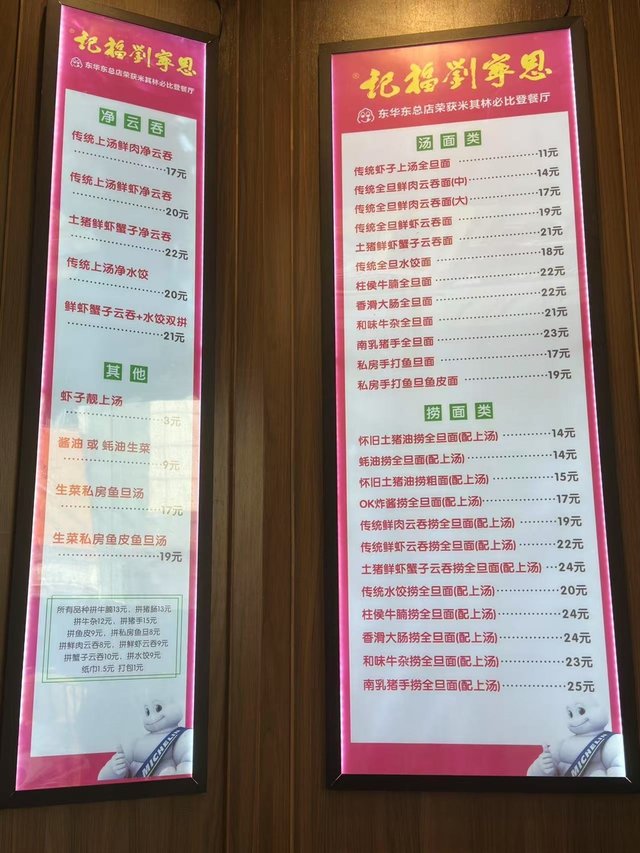 記福劉寧恩
®
东华东总店荣获米其林必比登餐厅
净云吞
传统上汤鲜肉净云吞
17元
传统上汤鲜虾净云吞
20元
土猪鲜虾蟹子净云吞
22元
传统上汤净水饺
20元
鲜虾蟹子云吞+水饺双拼
21元
其他
虾子靓上汤
3元
酱油 或 蚝油生菜
9元
生菜私房鱼旦汤
17元
生菜私房鱼皮鱼旦汤
19元
所有品种拼牛腩13元、拼猪肠13元
拼牛杂12元、拼猪手15元
拼鱼皮9元、拼私房鱼旦8元
拼鲜肉云吞8元、拼鲜虾云吞9元
拼蟹子云吞10元、拼水饺9元
纸巾1.5元 打包1元
MICHELIN
記福劉寧恩
®
东华东总店荣获米其林必比登餐厅
汤面类
传统虾子上汤全旦面 11元
传统全旦鲜肉云吞面(中) 14元
传统全旦鲜肉云吞面(大) 17元
传统全旦鲜虾云吞面 19元
土猪鲜虾蟹子云吞面 21元
传统全旦水饺面 18元
柱侯牛腩全旦面 22元
香滑大肠全旦面 22元
和味牛杂全旦面 21元
南乳猪手全旦面 23元
私房手打鱼旦面 17元
私房手打鱼旦鱼皮面 19元
捞面类
怀旧土猪油捞全旦面(配上汤) 14元
蚝油捞全旦面(配上汤) 14元
怀旧土猪油捞粗面(配上汤) 15元
OK炸酱捞全旦面(配上汤) 17元
传统鲜肉云吞捞全旦面(配上汤) 19元
传统鲜虾云吞捞全旦面(配上汤) 22元
土猪鲜虾蟹子云吞捞全旦面(配上汤) 24元
传统水饺捞全旦面(配上汤) 20元
柱侯牛腩捞全旦面(配上汤) 24元
香滑大肠捞全旦面(配上汤) 24元
和味牛杂捞全旦面(配上汤) 23元
南乳猪手捞全旦面(配上汤) 25元
MICHELIN